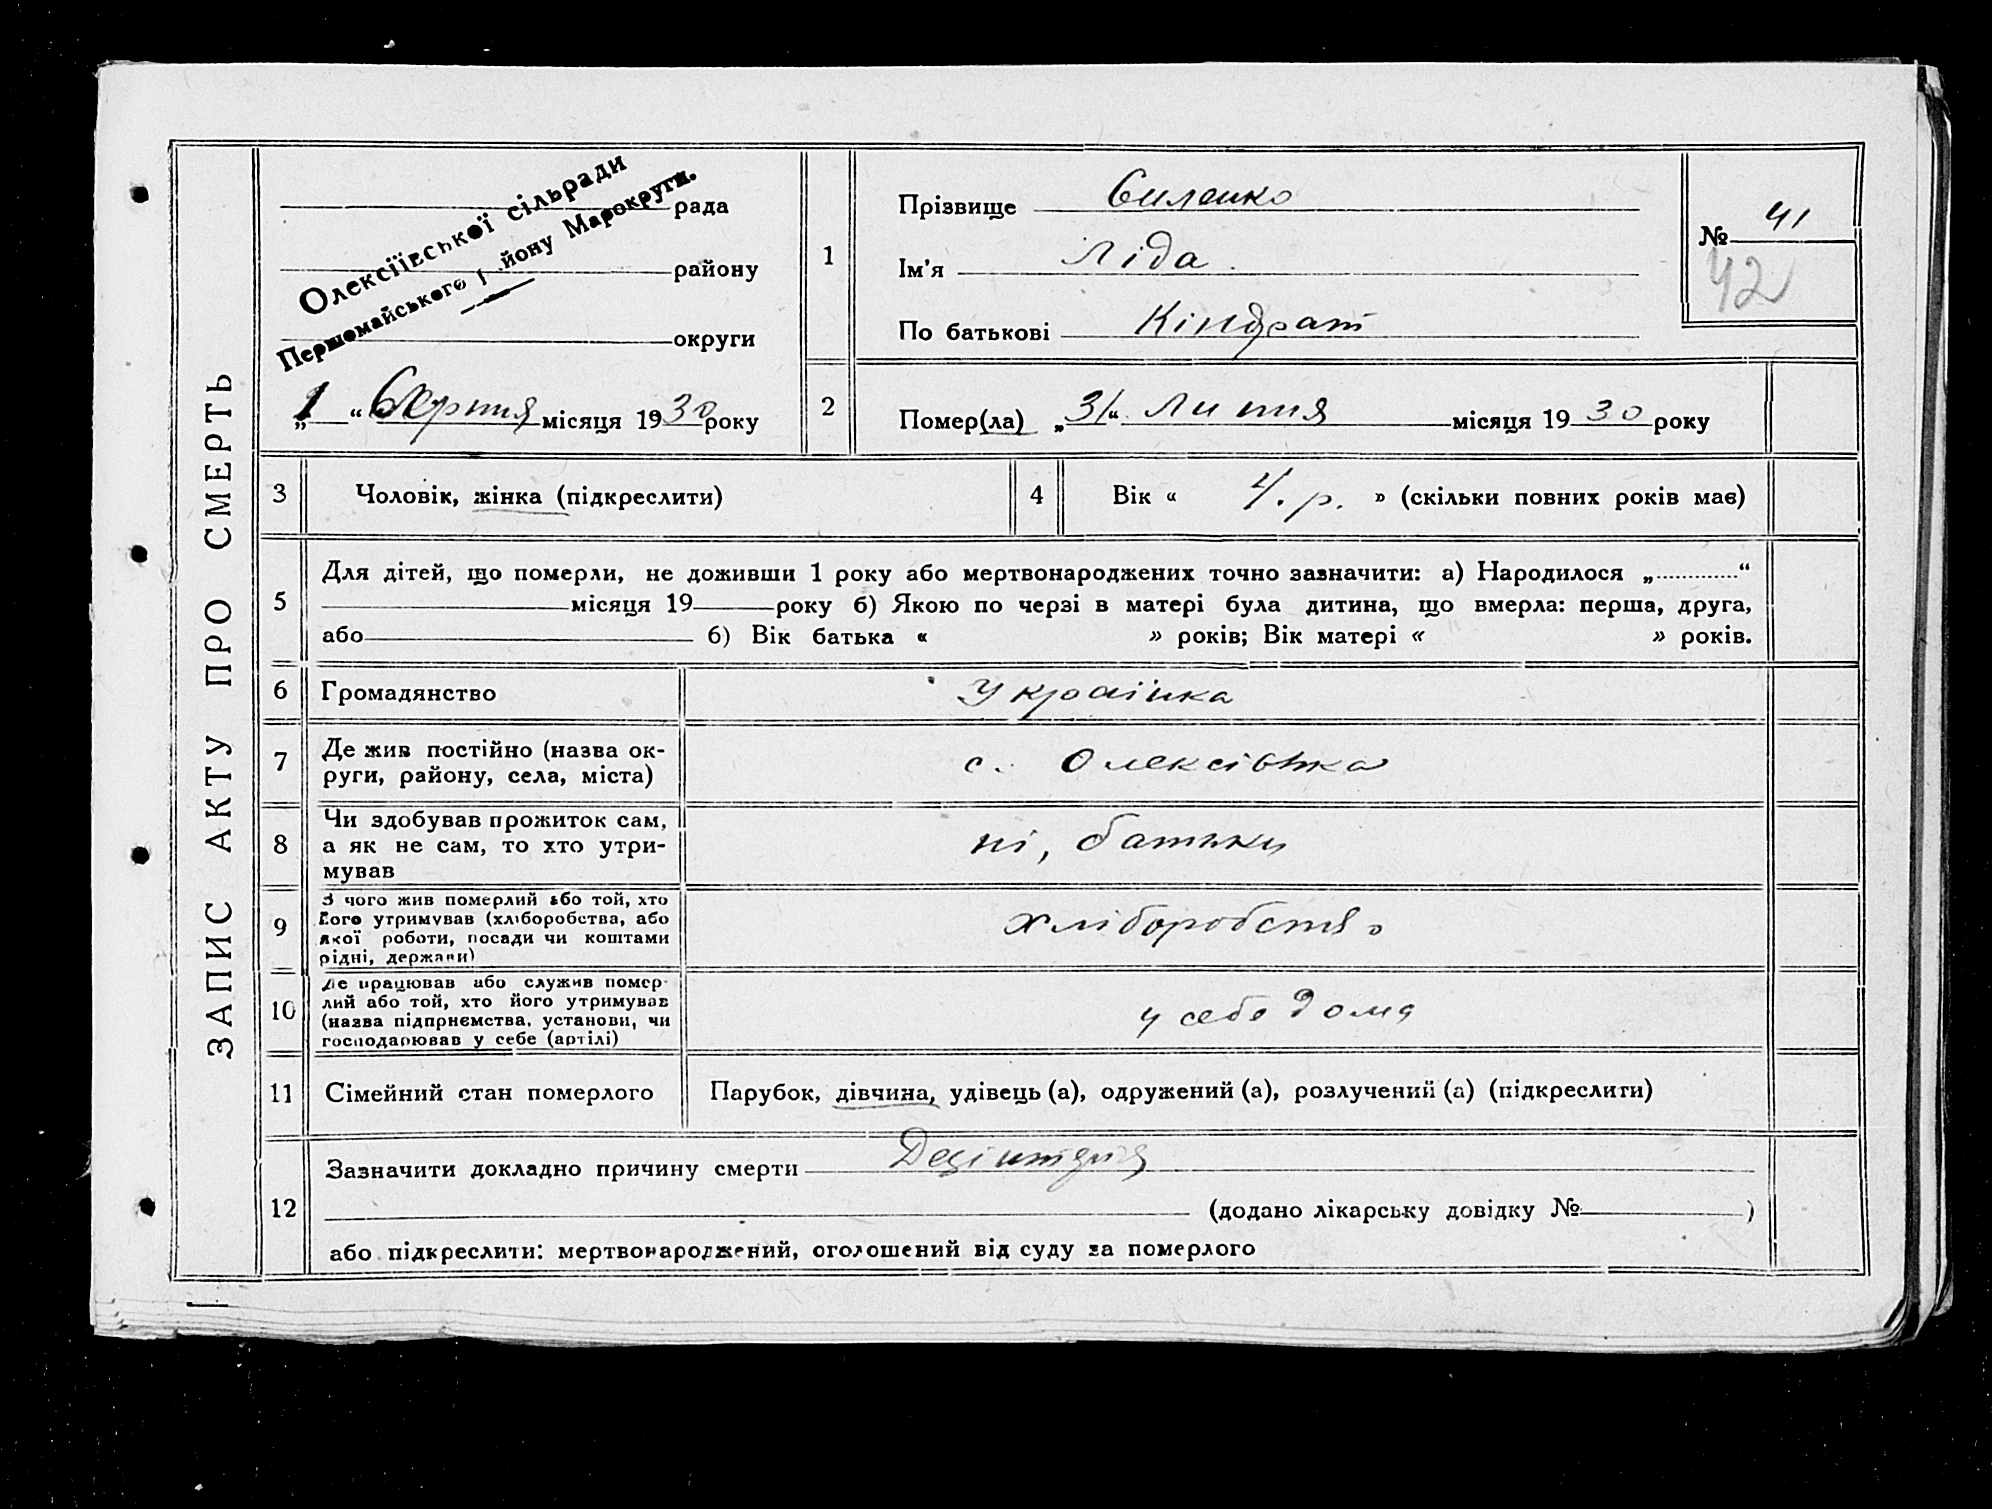 ЗАПИС АКТУ ПРО СМЕРТЬ
Олексіївської сільради
Першомайського району Марокруги.
рада
району
округи
„1“ Серпня місяця 1930 року
1
Прізвище Силенко
Ім'я Ліда
По батькові Кіндрат
№ 41
42
2
Помер(ла) „31“ Липня місяця 1930 року
3
Чоловік, жінка (підкреслити)
4
Вік « 4. р. » (скільки повних років має)
5
Для дітей, що померли, не доживши 1 року або мертвонароджених точно зазначити: а) Народилося „ “
місяця 19 року б) Якою по черзі в матері була дитина, що вмерла: перша, друга,
або 6) Вік батька « » років; Вік матері « » років.
6
Громадянство
Українка
7
Де жив постійно (назва ок-
руги, району, села, міста)
с. Олексіївка
8
Чи здобував прожиток сам,
а як не сам, то хто утри-
мував
ні, батьки
9
З чого жив померлий або той, хто
його утримував (хліборобства, або
якої роботи, посади чи коштами
рідні, держави)
Хліборобство
10
Де працював або служив помер-
лий або той, хто його утримував
(назва підприємства, установи, чи
господарював у себе (артілі)
у себе дома
11
Сімейний стан померлого
Парубок, дівчина, удівець (а), одружений (а), розлучений (а) (підкреслити)
12
Зазначити докладно причину смерти
(додано лікарську довідку № )
або підкреслити: мертвонароджений, оголошений від суду за померлого